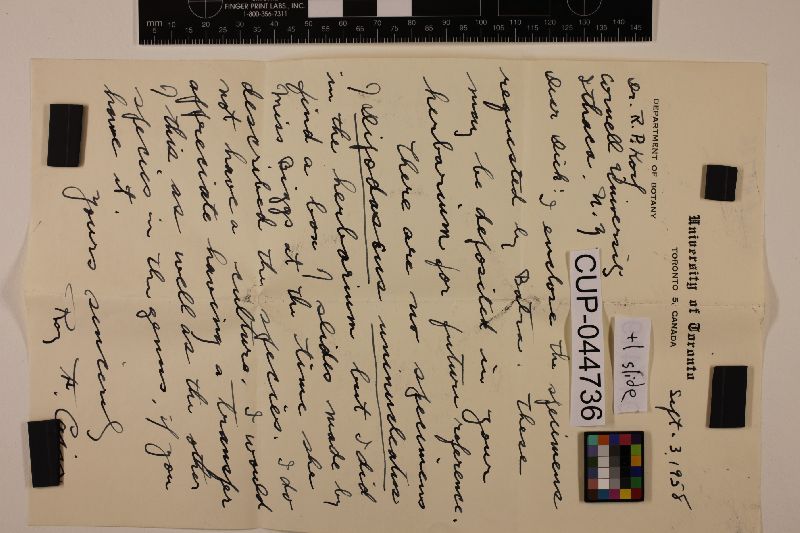 FINGER PRINT LABS., INC.
1-800-356-7311
mm 10 20 30 40 50 60 70 80 90 100 105 110 115 120 125 130 135 140 145
University of Toronto
TORONTO 5, CANADA
DEPARTMENT OF BOTANY
Sept. 3, 1958
+1 slide
CUP-044736
Dr. R. P. Korf
Cornell University
Ithaca. N.Y
Dear Dick: I enclose the specimens
requested by Batra. These
may be deposited in your
herbarium for future reference.
There are no specimens
of Dipodascus uninucleatus
in the herbarium but I did
find a box of slides made by
Miss Biggs at the time she
described the species. I do
not have a culture. I would
appreciate having a transfer
of this as well as the other
species in the genus, if you
have it.
Yours sincerely
Roy F. Cain